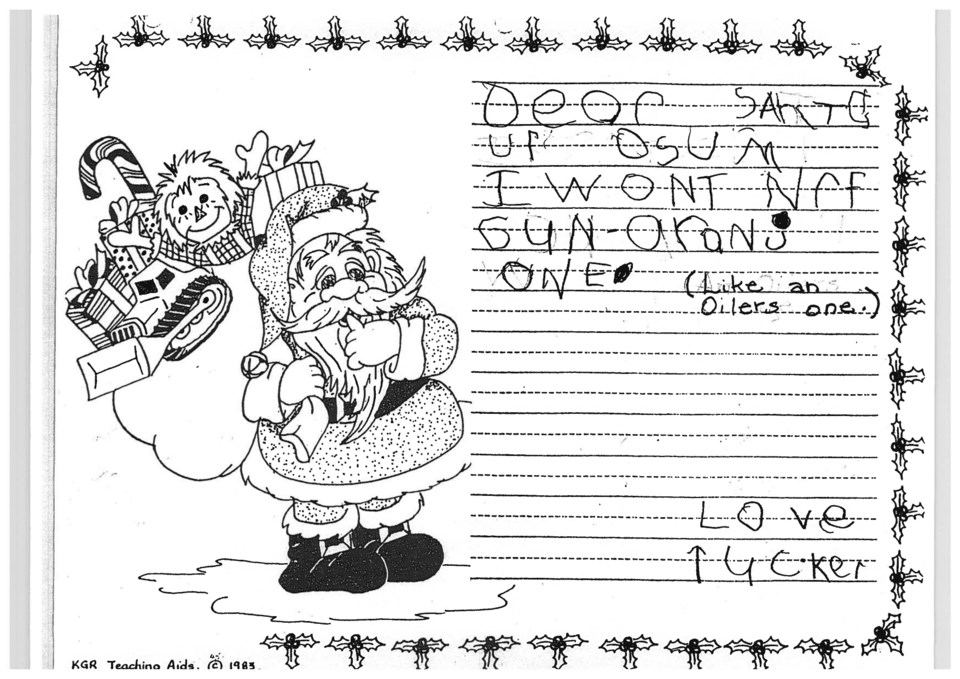 Dear SANTC
Ur OSUM
I WONT NrF
GUN-OraNJ
ONE.
(Like an
Oilers one.)
LOve
Tucker
KGR Teaching Aids. © 1985.